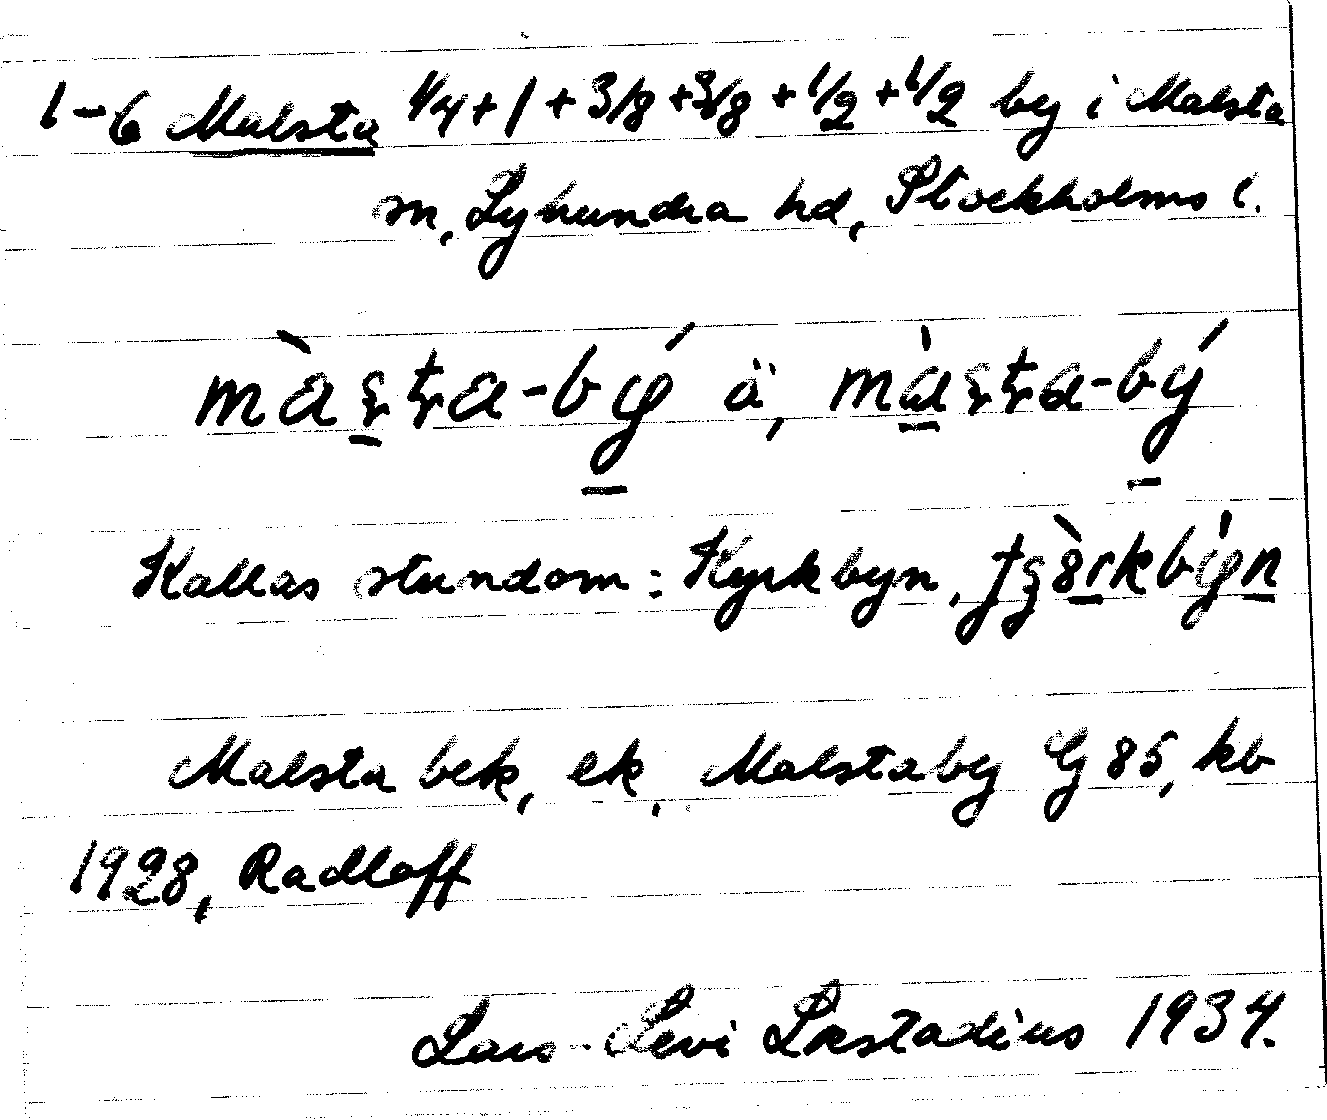 1-6 Malsta 1/4 + 1 + 3/8 + 3/8 + 1/2 + 1/2 by i Malsta
sn, Lyhundra hd, Stockholms l.
Kallas stundom: Kyrkbyn,
Malsta bek, ek, Malstaby G 85, kb
1928, Radloff
Lars-Levi Læstadius 1934.